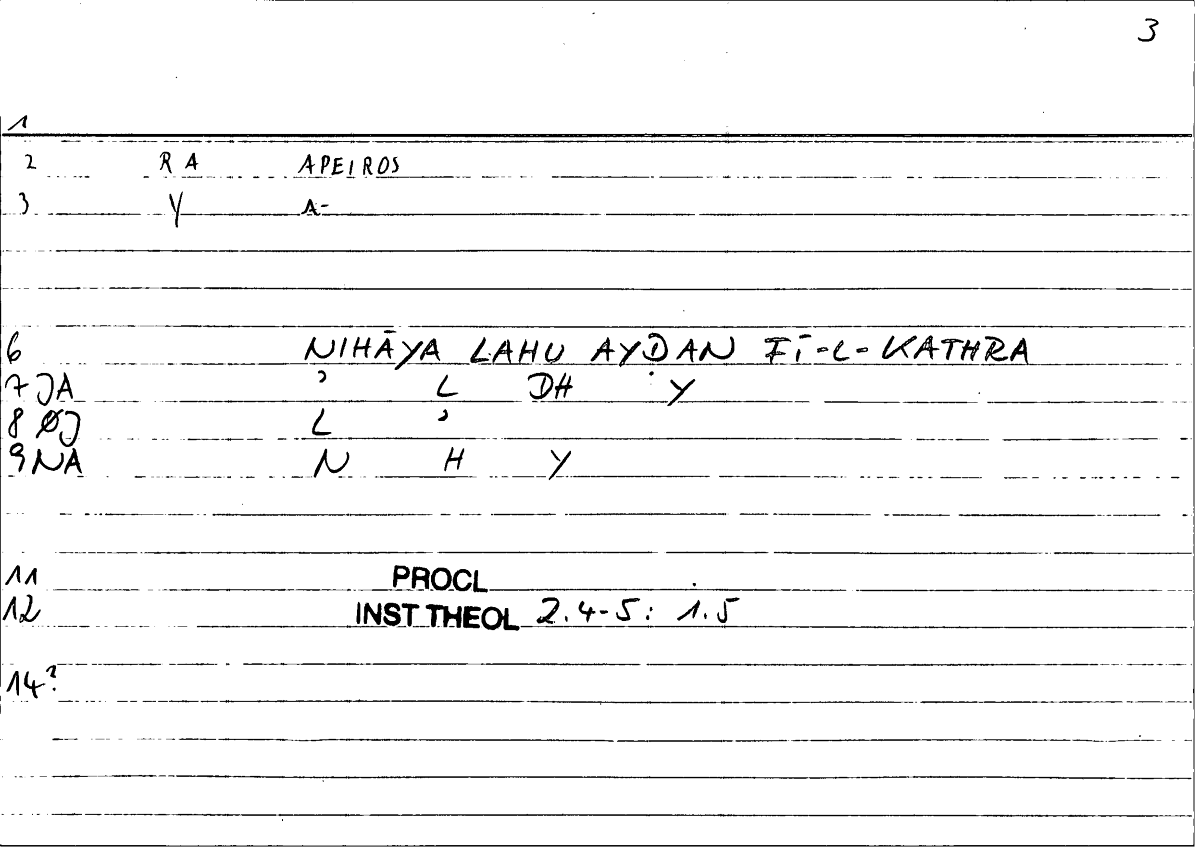 3
1
2 RA APEIROS
3 Y A-
6 NIHĀYA LAHU AYḌAN FĪ-L-KATHRA
7 JA ʾ L DH Y
8 ØJ L ʾ
9 NA N H Y
11 PROCL
12 INST THEOL 2.4-5: 1.5
14?